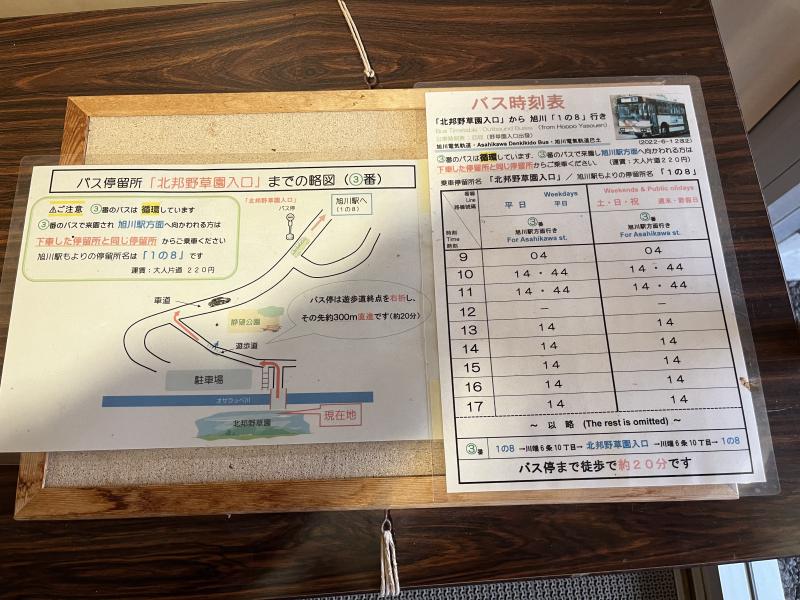 バス停留所「北邦野草園入口」までの略図(③番)
⚠ご注意 ③番のバスは 循環しています
③番のバスで来園され 旭川駅方面へ向かわれる方は
下車した停留所と同じ停留所 からご乗車ください
旭川駅もよりの停留所名は「1の8」です
運賃:大人片道 220円
「北邦野草園入口」
バス停
旭川駅へ
(1の8)
車道
バス停は遊歩道終点を右折し、
その先約300m直進です(約20分)
静望公園
遊歩道
駐車場
オサラッペ川
北邦野草園
現在地
バス時刻表
「北邦野草園入口」から 旭川「1の8」行き
Bus Timetable: Outbound Buses (from Hoppo Yasouen)
旭川電気軌道・Asahikawa Denkikido Bus・旭川電氣軌道巴士
(2022-6-12改正)
③番のバスは循環しています。③番のバスで来園し旭川駅方面へ向かわれる方は
下車した停留所と同じ停留所からご乗車ください。(運賃:大人片道220円)
乗車停留所名 「北邦野草園入口」/ 旭川駅もよりの停留所名 「1の8」
番線
Line
路線號碼
時刻
Time
時刻
平日 Weekdays 平日
土・日・祝 Weekends & Public
③番 ③番
旭川駅方面行き 旭川駅方面行き
For Asahikawa st. For Asahikawa st.
9 04 04
10 14・44 14・44
11 14・44 14・44
12 — —
13 14 14
14 14 14
15 14 14
16 14 14
17 14 14
~ 以 略 (The rest is omitted) ~
③番 1の8 →川端6条10丁目→ 北邦野草園入口 →川端6条10丁目→ 1の8
バス停まで徒歩で約20分です